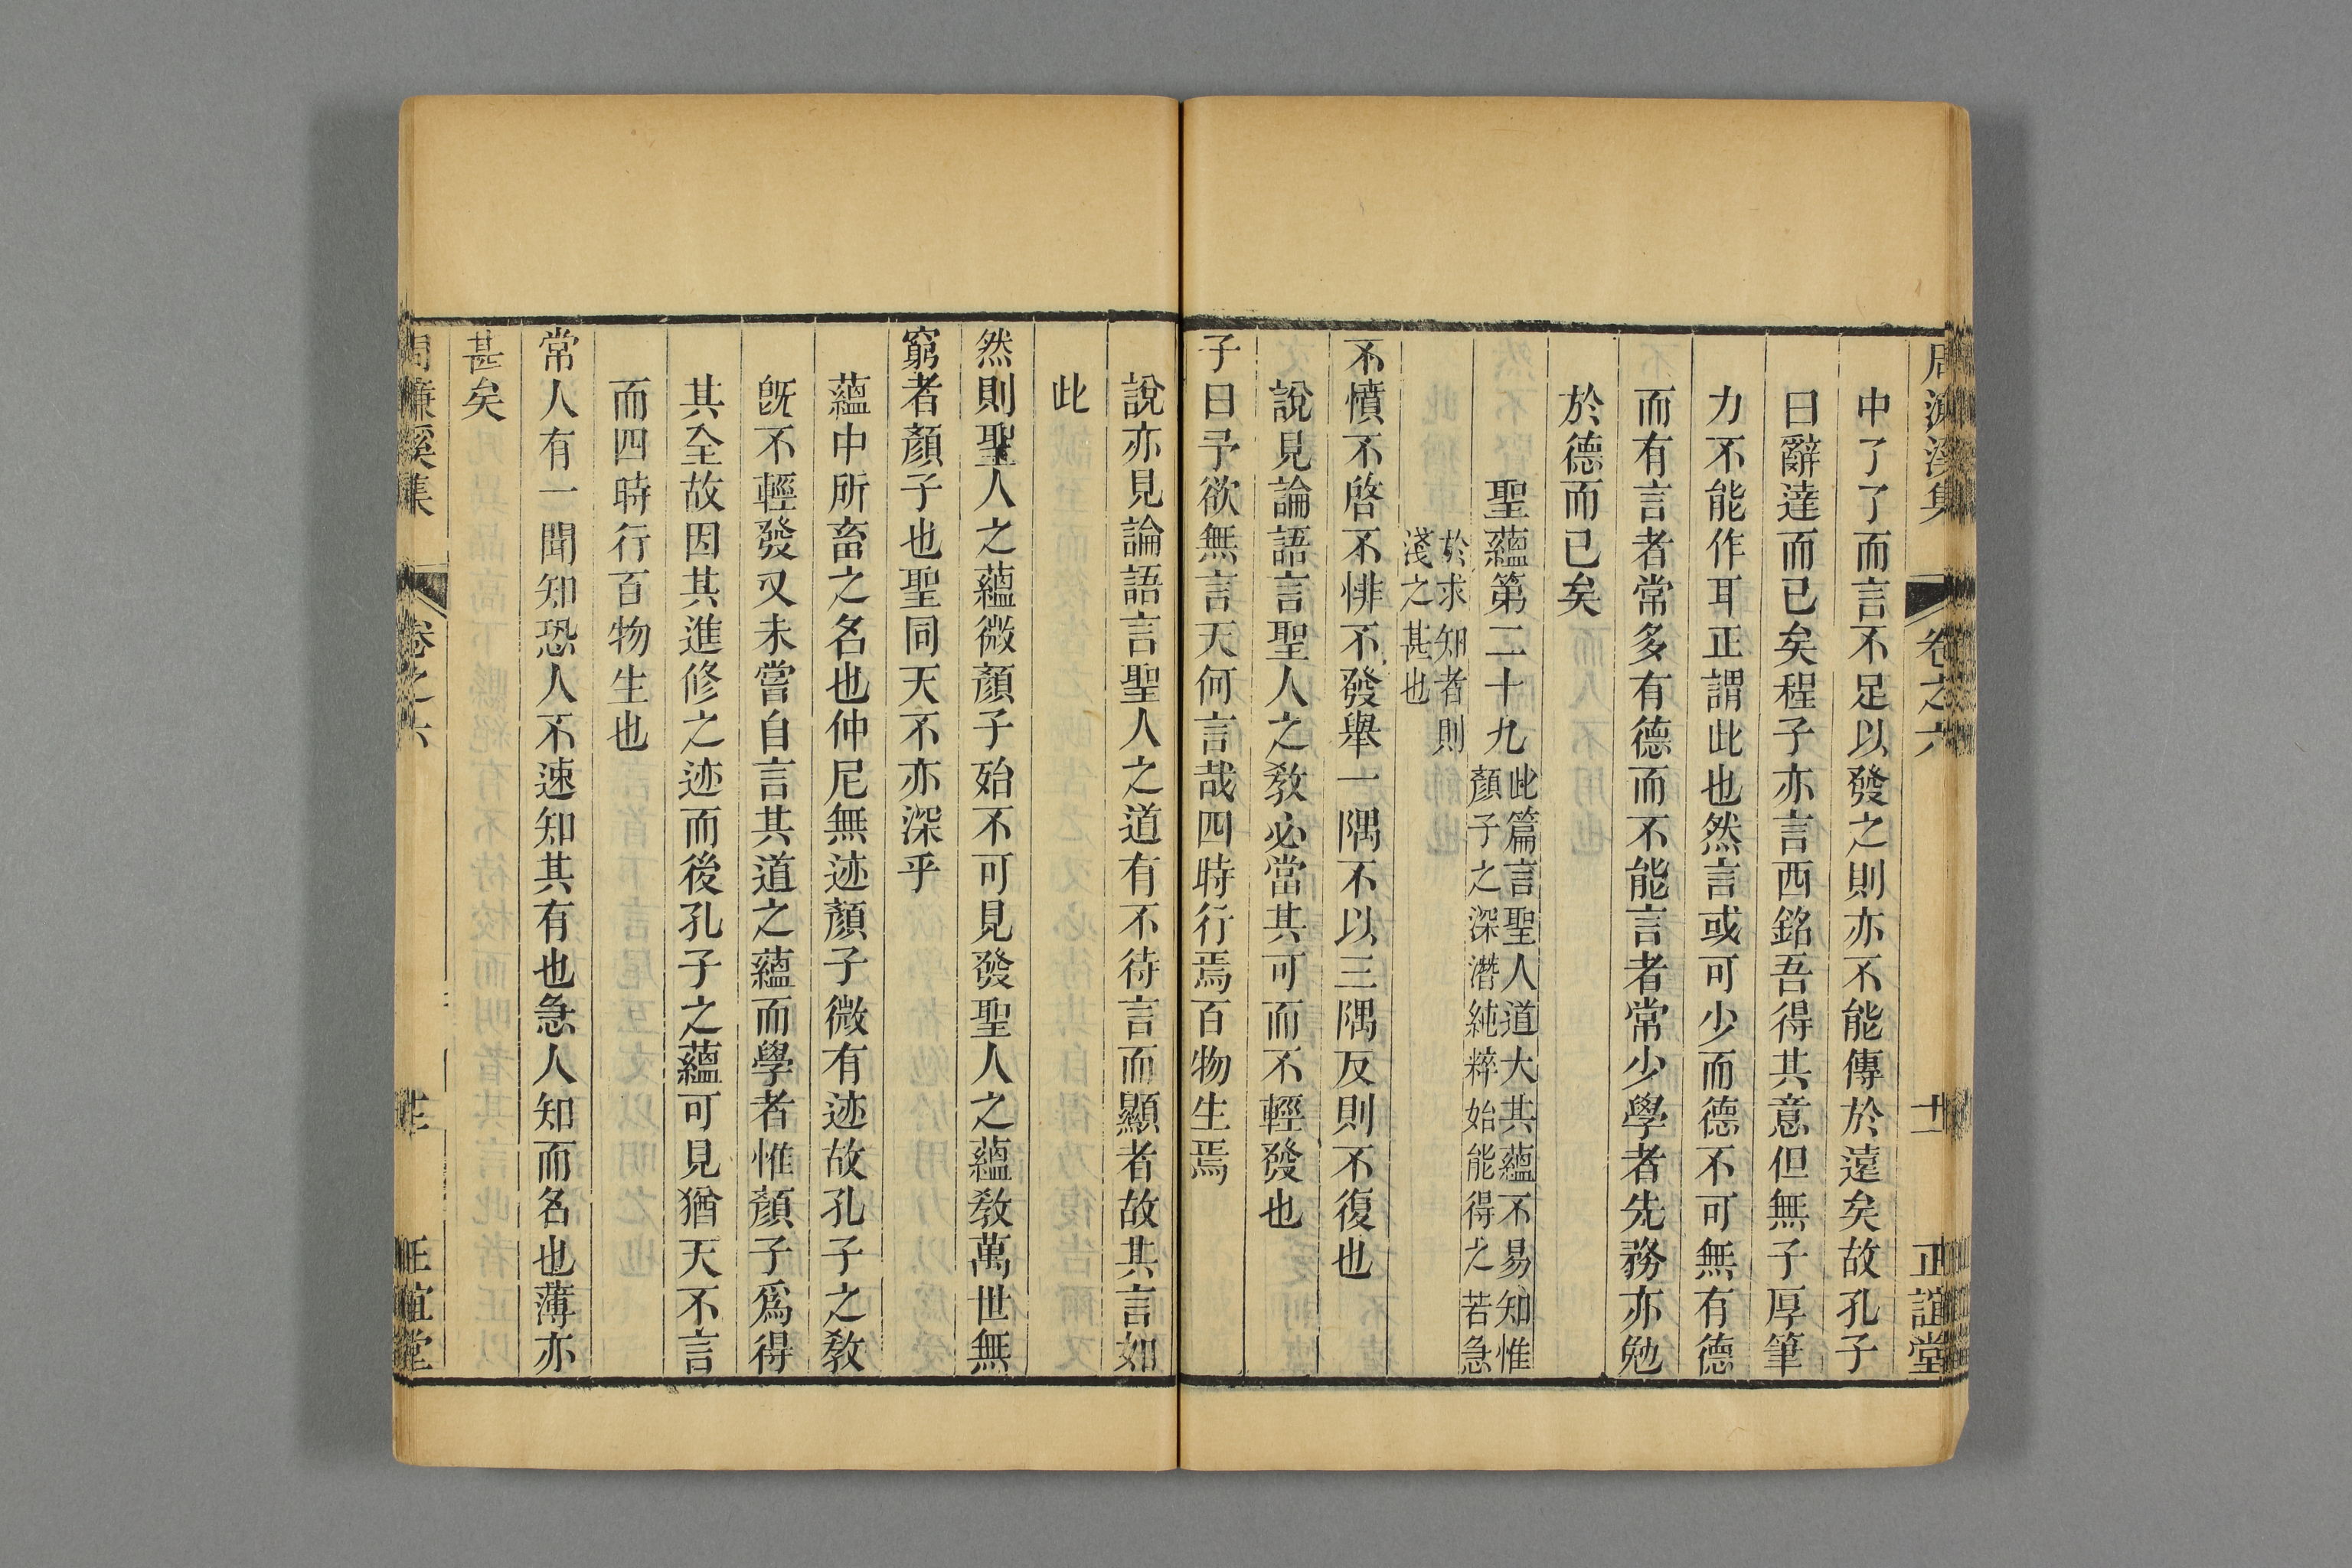 周濂溪集 卷之六 十二 正誼堂
中了了而言不足以發之則亦不能傳於遠矣故孔子
曰辭達而已矣程子亦言西銘吾得其意但無子厚筆
力不能作耳正謂此也然言或可少而德不可無有德
而有言者常多有德而不能言者常少學者先務亦勉
於德而已矣
聖蘊第二十九
此篇言聖人道大其蘊不易知惟
顏子之深潛純粹始能得之若急
於求知者則
淺之甚也
不憤不啓不悱不發舉一隅不以三隅反則不復也
說見論語言聖人之敎必當其可而不輕發也
子曰予欲無言天何言哉四時行焉百物生焉
說亦見論語言聖人之道有不待言而顯者故其言如
此
然則聖人之蘊微顏子殆不可見發聖人之蘊敎萬世無
窮者顏子也聖同天不亦深乎
蘊中所畜之名也仲尼無迹顏子微有迹故孔子之敎
旣不輕發又未嘗自言其道之蘊而學者惟顏子爲得
其全故因其進修之迹而後孔子之蘊可見猶天不言
而四時行百物生也
常人有一聞知恐人不速知其有也急人知而名也薄亦
甚矣
周濂溪集 卷之六 正誼堂